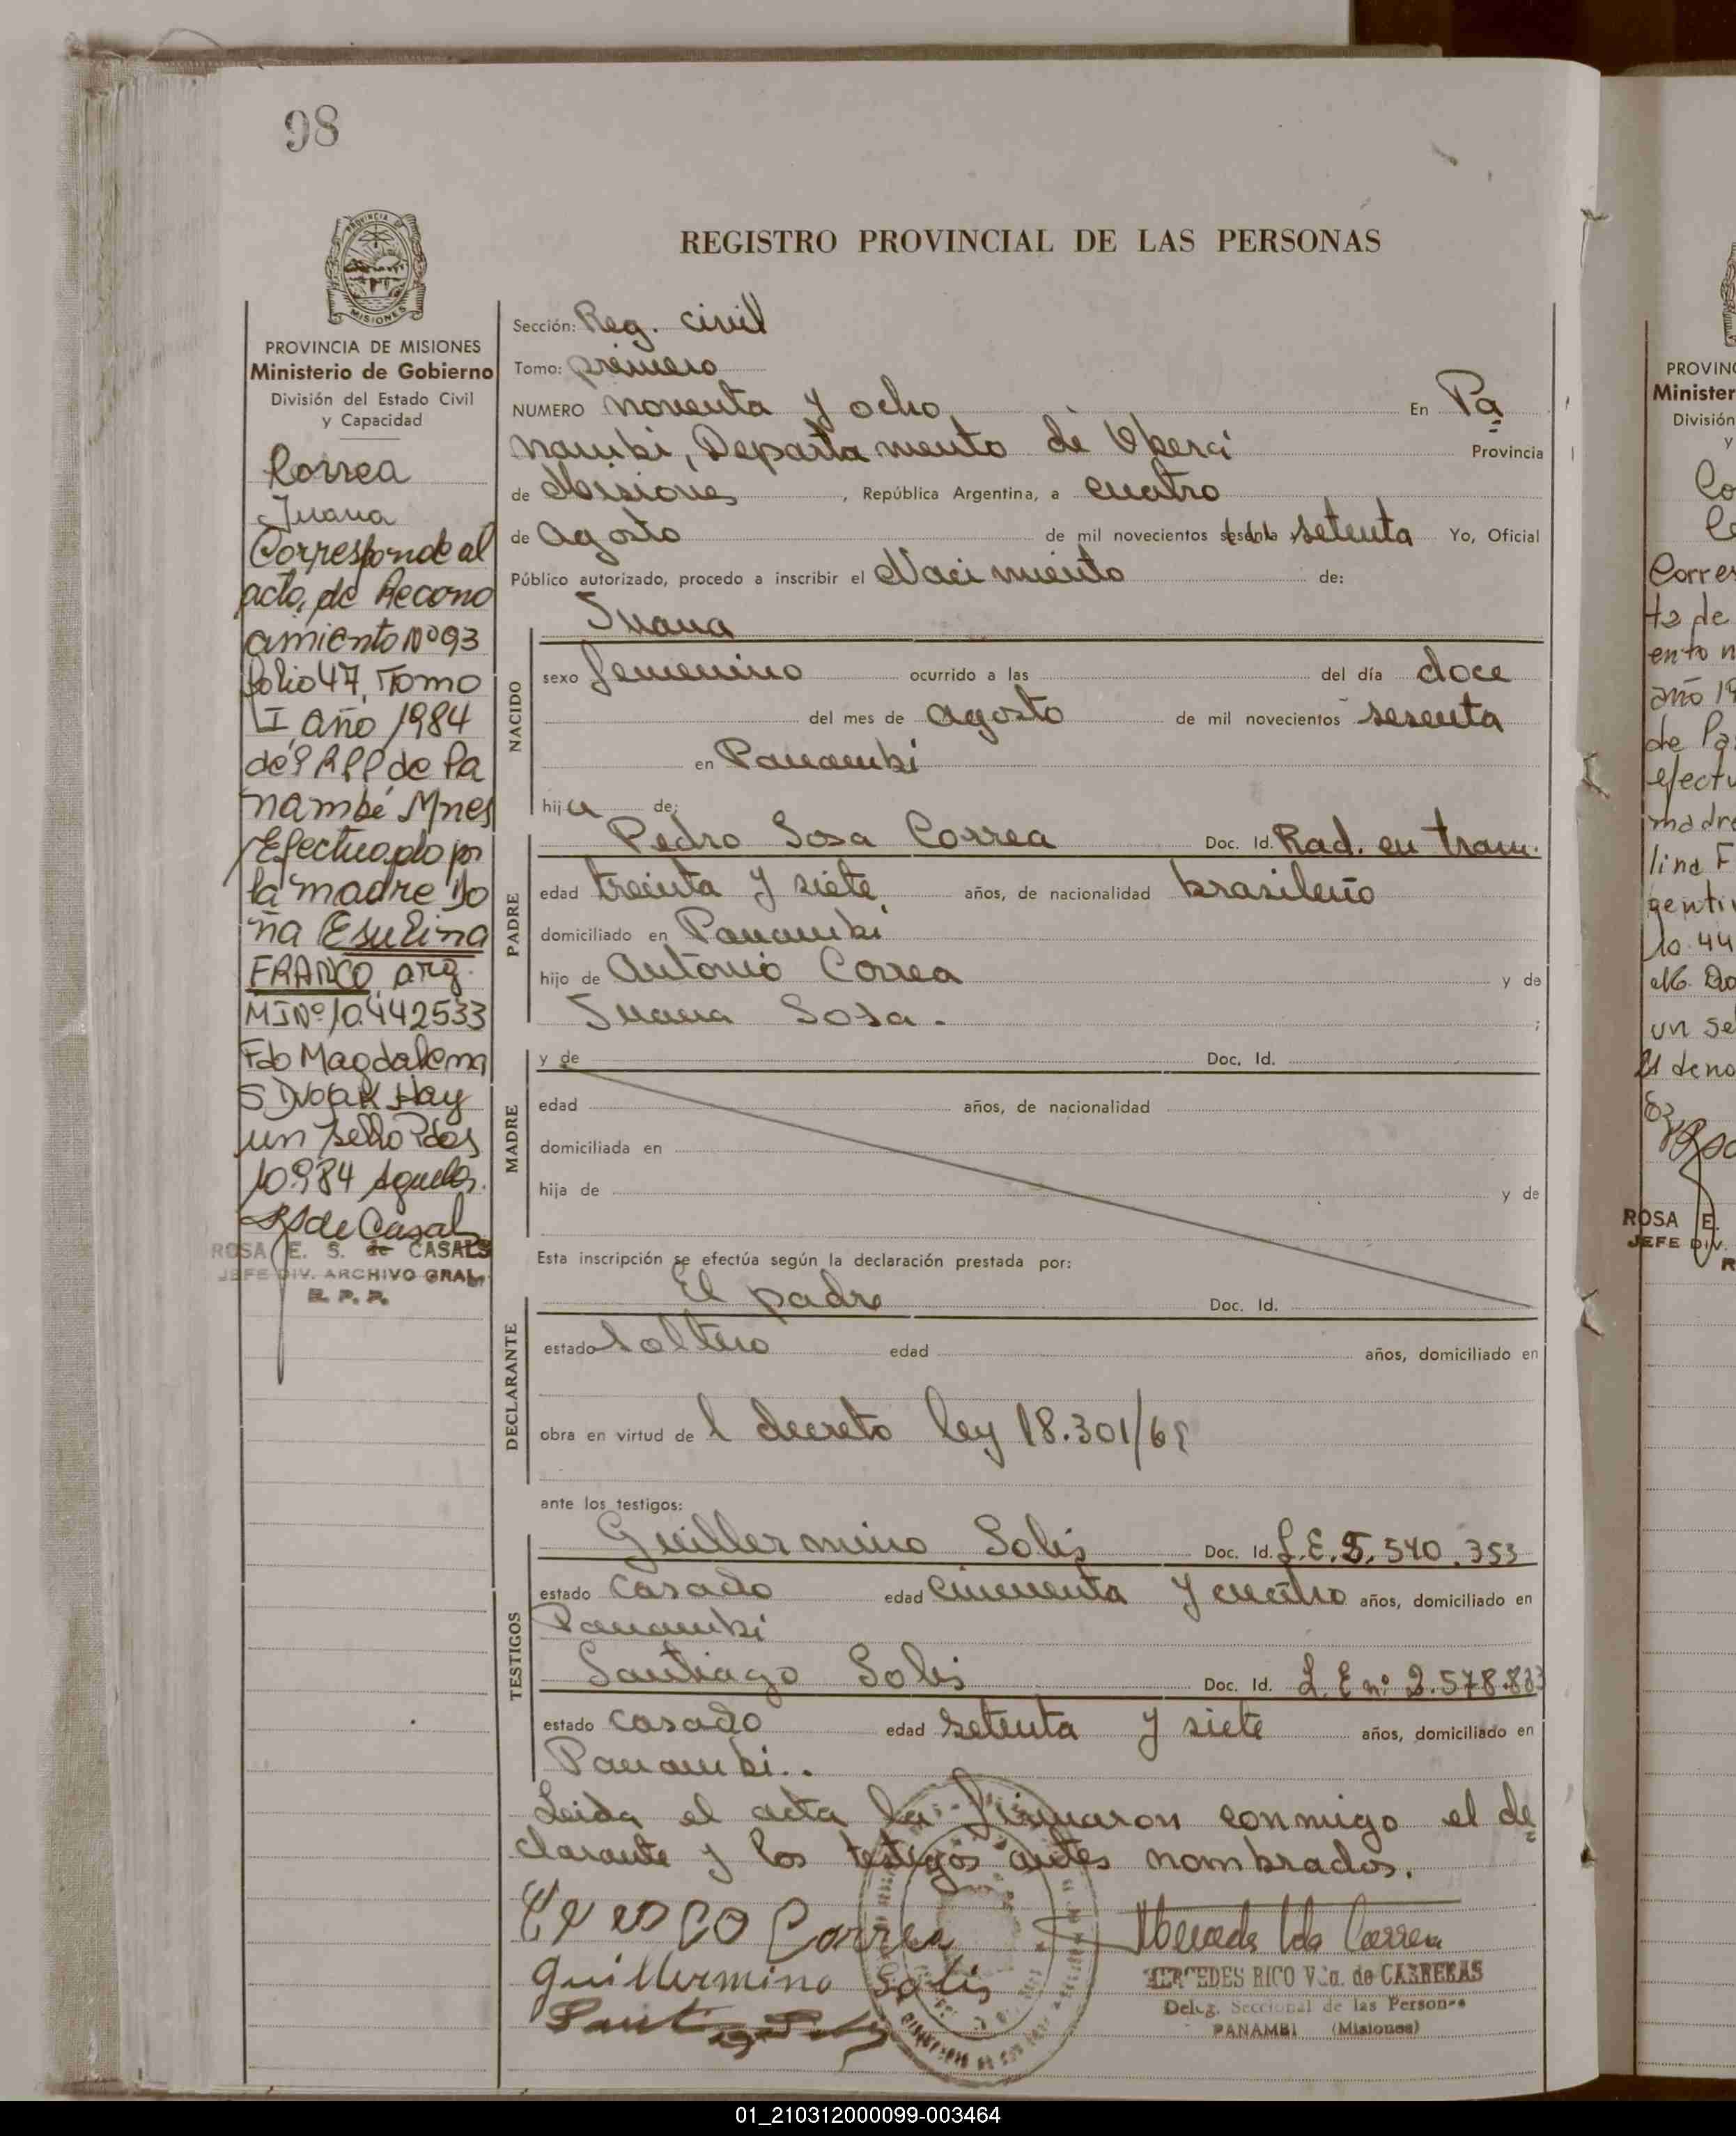 98
REGISTRO PROVINCIAL DE LAS PERSONAS
PROVINCIA DE
MISIONES
PROVINCIA DE MISIONES
Ministerio de Gobierno
División del Estado Civil
y Capacidad
Correa
Juana
Corresponde al
acta, de Recono
cimiento Nº 93
folio 47, Tomo
I año 1984
del RPP de Pa
nambé Mnes
Efectuado por
la madre Do
ña Esulina
FRANCO arg.
MI Nº 10.442533
Fdo Magdalena
S Dvorak Hay
un sello Pdas
10.9.84
RS de Casals
ROSA E. S. de CASALS
JEFE DIV. ARCHIVO GRAL.
R. P. P.
Sección: Reg. civil
Tomo: primero
NUMERO noventa y ocho, En Pa
nambi, Departamento de Oberá Provincia
de Misiones, República Argentina, a cuatro
de agosto de mil novecientos sesenta setenta Yo, Oficial
Público autorizado, procedo a inscribir el Nacimiento de:
Juana
NACIDO
sexo femenino ocurrido a las del día doce
del mes de agosto de mil novecientos sesenta
en Panambi
hija de:
PADRE
Pedro Sosa Correa Doc. Id. Rad. en tram.
edad treinta y siete, años, de nacionalidad brasileño
domiciliado en Panambi
hijo de Antonio Correa y de
Juana Sosa. ;
MADRE
y de Doc. Id.
edad años, de nacionalidad
domiciliada en
hija de y de
Esta inscripción se efectúa según la declaración prestada por:
DECLARANTE
El padre Doc. Id.
estado soltero edad años, domiciliado en
obra en virtud de l decreto ley 18.301/69
ante los testigos:
TESTIGOS
Guillermino Solis Doc. Id. L.E. 5.540.353
estado casado edad cincuenta y cuatro años, domiciliado en
Panambi
Santiago Solis Doc. Id. L.E nº 2.578.883
estado casado edad setenta y siete años, domiciliado en
Panambi..
Leida el acta la firmaron conmigo el de
clarante y los testigos antes nombrados.
Correa
Guillermino Solis
MERCEDES RICO Vda. de CARRERAS
Deleg. Seccional de las Personas
PANAMBI (Misiones)
PROVIN
Minister
División
y
Co
Corres
ta de
ento n
año 19
de Pa
efectu
madre
lina F
genti
10.44
un se
ROSA E.
JEFE DIV.
R
01_210312000099-003464